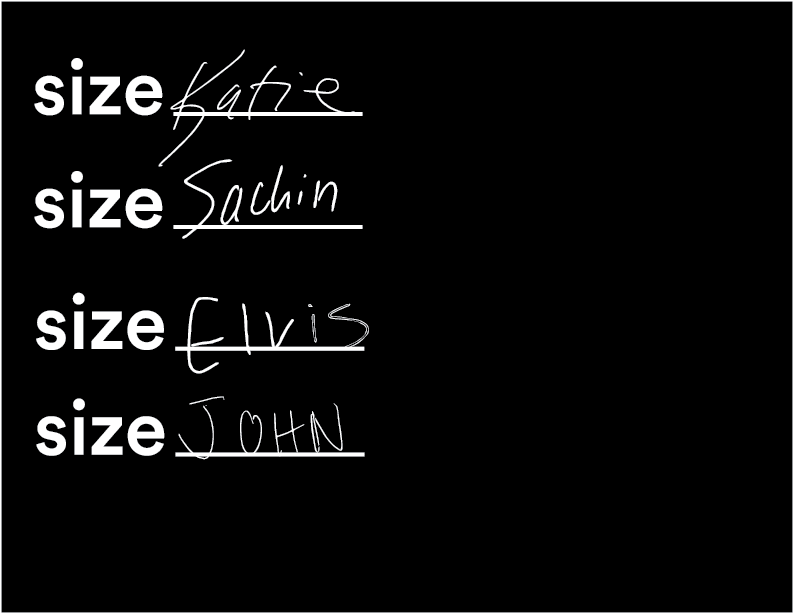 size Katie
size Sachin
size Elvis
size JOHN